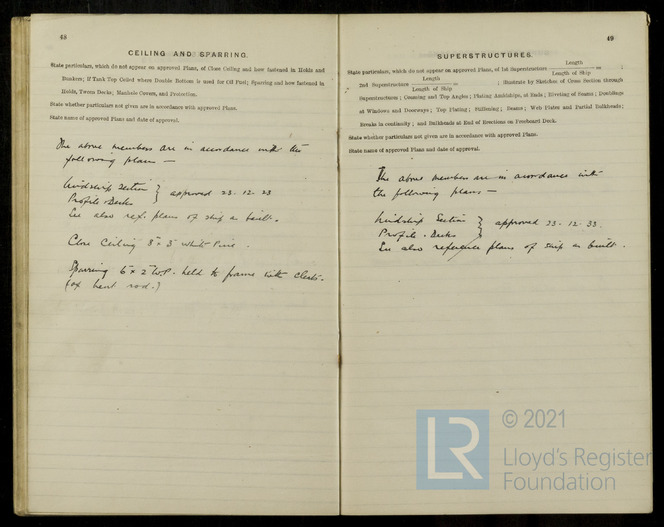 48
CEILING AND SPARRING.
State particulars, which do not appear on approved Plans, of Close Ceiling and how fastened in Holds and
Bunkers; If Tank Top Ceiled where Double Bottom is used for Oil Fuel; Sparring and how fastened in
Holds, Tween Decks; Manhole Covers, and Protection.
State whether particulars not given are in accordance with approved Plans.
State name of approved Plans and date of approval.
The above members are in acordance with the
following plans —
Midship Section } approved 23 - 12 - 23
Profile & Decks
See also ref. plans of ship as built.
Close Ceiling 8" x 3" White Pine.
Sparring 6" x 2" W.P. held to frame with cleats.
(of bent rod.)
49
SUPERSTRUCTURES.
State particulars, which do not appear on approved Plans, of 1st Superstructure Length / Length of Ship = ;
2nd Superstructure Length / Length of Ship = ; illustrate by Sketches of Cross Section through
Superstructures; Coaming and Top Angles; Plating Amidships, at Ends; Riveting of Seams; Doublings
at Windows and Doorways; Top Plating; Stiffening; Beams; Web Plates and Partial Bulkheads;
Breaks in continuity; and Bulkheads at End of Erections on Freeboard Deck.
State whether particulars not given are in accordance with approved Plans.
State name of approved Plans and date of approval.
The above members are in acordance with
the following plans —
Midship Section } approved 23 - 12 - 33.
Profile & Decks
See also reference plans of ship as built.
LR
© 2021
Lloyd's Register
Foundation